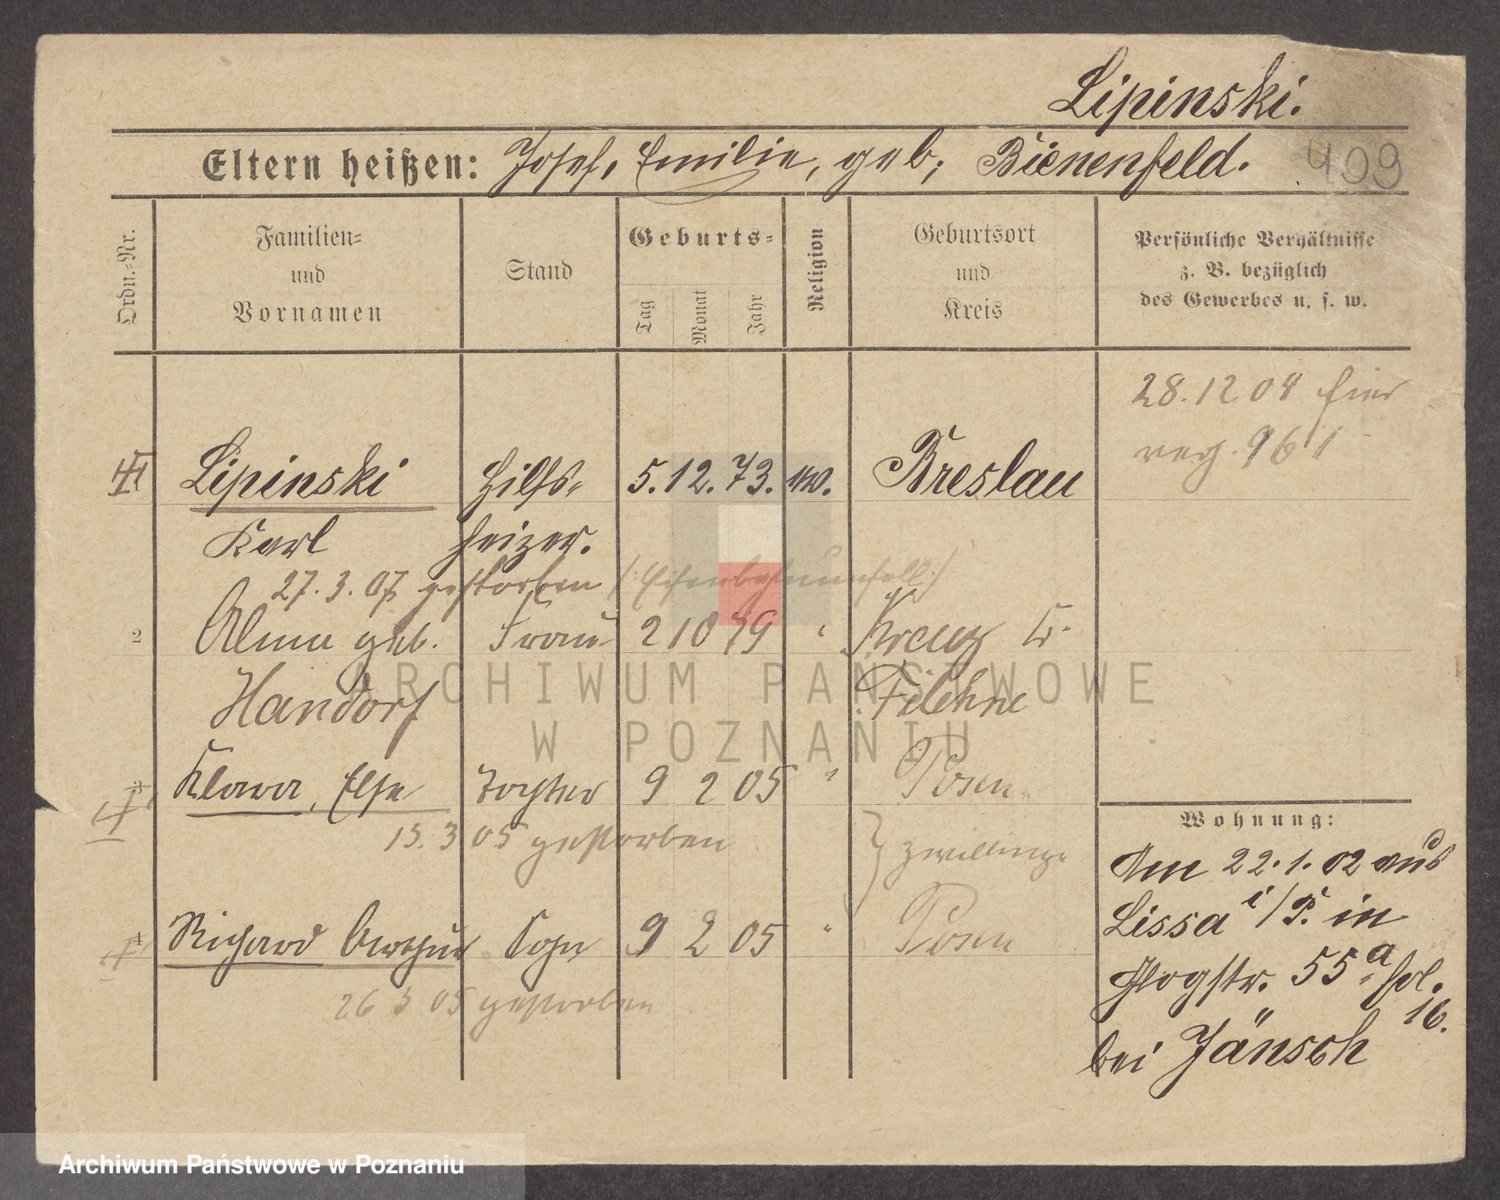 Lipinski.
Eltern heißen: Josef, Emilie, geb. Bienenfeld.
409
Ordn.-Nr.
Familien-
und
Vornamen
Stand
Geburts-
Tag
Monat
Jahr
Religion
Geburtsort
und
Kreis
Persönliche Verhältnisse
z. B. bezüglich
des Gewerbes u. s. w.
28.12 04 hier
reg. 961
Lipinski Hilfs- 5. 12. 73. Breslau
Karl heizer.
27. 3. 07 gestorben (: Eisenbahnunfall :)
2 Alma geb. Frau 2 10 79 " Kreuz Kr.
Handorf Filehne
3 Klara, Else Tochter 9 2 05 " Posen
13. 3 05 gestorben
Zwillinge
4 Richard Arthur Sohn 9 2 05 " Posen
26 3 05 gestorben
Wohnung:
Am 22. 1. 02 aus
Lissa i/P. in
Glogstr. 55a
16.
bei Jänsch
ARCHIWUM PAŃSTWOWE
W POZNANIU
Archiwum Państwowe w Poznaniu